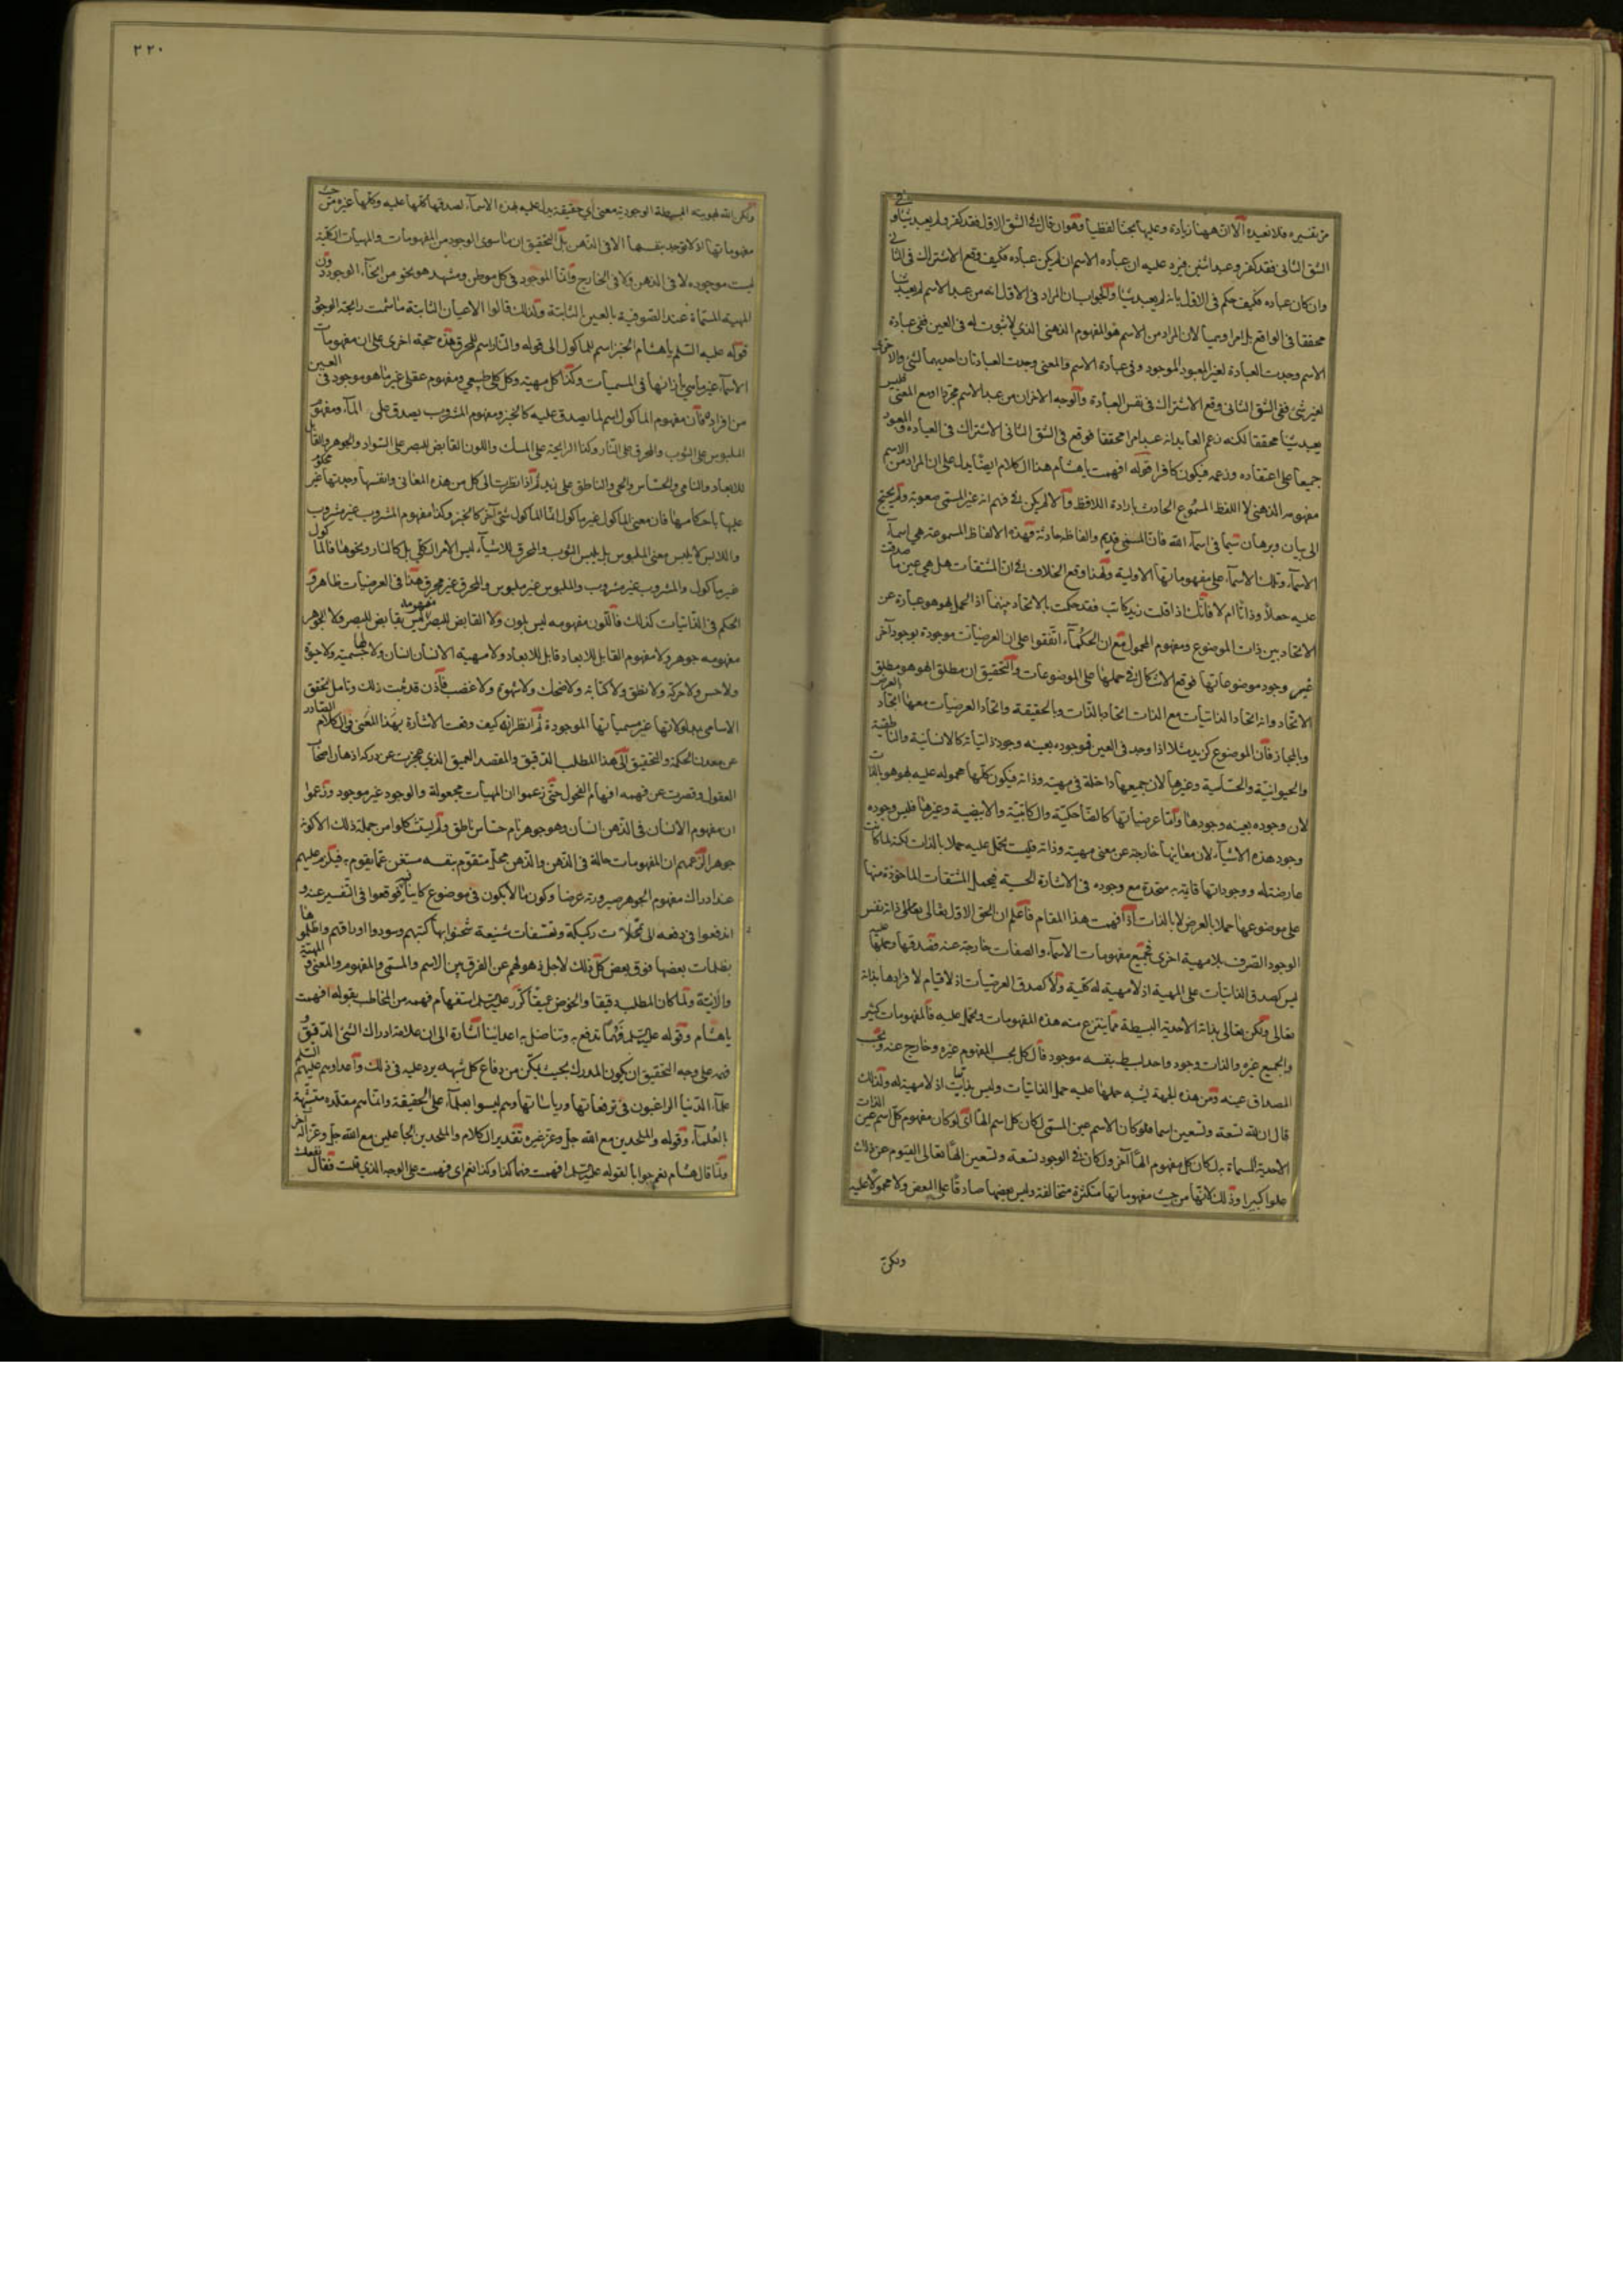 من تفسيره فلا نعيده الا ان ههنا زيادة وعليها بحثا لفظيا وهو ان قال في الشق الاول فقد كفر ولم يعبد شيئا وفي
الشق الثاني فقد كفر وعبد اثنين فيرد عليه ان عباده الاسم ان لم يكن عباده فكيف وقع الاشتراك في الثاني
وان كان عباده فكيف حكم في الاول بانه لم يعبد شيئا والجواب ان المراد في الاول انه من عبد الاسم لم يعبد شيئا
محققا في الواقع بل امرا وهميا لان المراد من الاسم هو المفهوم الذهني الذي لا ثبوت له في العين ففي عبادة
الاسم وجدت العبادة لغير المعبود الموجود وفي عبادة الاسم والمعنى وجدت العبادتان احديهما لشئ والاخرى
لغير شئ ففي الشق الثاني وقع الاشتراك في نفس العبادة والوجه الاخر ان من عبد الاسم مجردا او مع المعنى فليس
يعبد شيئا محققا لكنه زعم العابد انه عبد امرا محققا فوقع في الشق الثاني الاشتراك في العباده والمعبود
جميعا على اعتقاده وزعمه فيكون كافرا قوله افهمت يا هشام هذا الكلام ايضا يدل على ان المراد من الاسم
مفهومه الذهني لا اللفظ المسموع الحادث بارادة اللافظ والا لم يكن في فهم انه غير المسمى صعوبة ولم يحتج
الى بيان وبرهان سيما في اسماء الله فان المسمى قديم والفاظه حادثة فهذه الالفاظ المسموعة هي اسماء
الاسماء وتلك الاسماء على مفهوماتها الاولية ولهذا وقع الخلاف في ان المشتقات هل هي عين ما صدقت
عليه جعلا وذاتا ام لا فانك اذا قلت زيد كاتب فقد حكمت بالاتحاد بينهما اذ الحمل بهو هو عبارة عن
الاتحاد بين ذات الموضوع ومفهوم المحمول مع ان الحكماء اتفقوا على ان العرضيات موجودة بوجود آخر
غير وجود موضوعاتها فوقع الاشكال في حملها على الموضوعات والتحقيق ان مطلق الهوهو مطلق
الاتحاد وانه اتحاد الذاتيات مع الذات اتحاد بالذات وبالحقيقة واتحاد العرضيات معها اتحاد بالعرض
وبالمجاز فان الموضوع كزيد مثلا اذا وجد في العين فوجوده بعينه وجود ذاتياته كالانسانية والناطقية
والحيوانية والحساسية وغيرها لان جميعها داخلة في مهيته وذاته فيكون كلها محموله عليه بهو هو بالذات
لان وجوده بعينه وجودها واما عرضياتها كالضاحكية والكاتبية والابيضية وغيرها فليس وجوده
وجود هذه الاشياء لان معانيها خارجة عن معنى مهيته وذاته فليست تحمل عليه حملا بالذات لكنه لما كانت
عارضة له ووجوداتها قاية به متحدة مع وجوده في الاشارة الحسية فيحمل المشتقات الماخوذة منها
على موضوعها حملا بالعرض لا بالذات اذا فهمت هذا المقام فاعلم ان الحق الاول تعالى لما كان ذاته نفس
الوجود الصرف بلا مهية اخرى فجميع مفهومات الاسماء والصفات خارجة عنه فصدقها وحملها عليه
ليس كصدق الذاتيات على المهية اذ لا مهية له كلية ولا كصدق العرضيات اذ لا قيام لافرادها بذاته
تعالى ولكن تعالى بذاته الاحدية البسيطة مما ينتزع منه هذه المفهومات ويحمل عليه فالمفهومات كثير
والجميع غيره والذات وجود واحد بسيط بنفسه موجود فالكل بحسب المفهوم غيره وخارج عنه وبحسب
المصداق عينه ومن هذه الجهة يشبه حملها عليه حمل الذاتيات وليس بذاتيات اذ لا مهية له ولذلك
قال ان لله تسعة وتسعين اسما فلو كان الاسم عين المسمى لكان كل اسم الها اي لو كان مفهوم كل اسم عين الذات
الاحدية المسماة به لكان كل مفهوم الها آخر ولكان في الوجود تسعة وتسعين الها تعالى القيوم عن ذلك
علوا كبيرا وذلك لانها من حيث مفهوماتها متكثرة متخالفة وليس بعضها صادقا على البعض ولا محمولا عليه
ولكن
٢٢٠
ولكن الله لهويته البسيطة الوجودية معنى اي حقيقة يدل عليه بهذه الاسماء لصدقها كلها عليه وكلها غيره من حيث
مفهوماتها اذ لا توجد بنفسها الا في الذهن بل التحقيق ان ما سوى الوجود من المفهومات والمهيات الكلية
ليست موجوده لا في الذهن ولا في الخارج وانما الموجود في كل موطن ومشهد هو نحو من انحاء الوجود دون
المهية المسماة عند الصوفية بالعين الثابتة ولذلك قالوا الاعيان الثابتة ما شمت رايحة الوجود
قوله عليه السلم يا هشام الخبز اسم للماكول الى قوله والنار اسم للمحرق هذه حجة اخرى على ان مفهومات
الاسماء غير ما سمي بازائها في المسميات وكذا كل مهية وكل كلي طبيعي ومفهوم عقلي غير ما هو موجود في العين
من افراده فان مفهوم الماكول اسم لما يصدق عليه كالخبز ومفهوم المشروب يصدق على الماء ومفهوم
الملبوس على الثوب والمحرق على النار وكذا الرايحة على المسك واللون القابض للبصر على السواد والجوهر والقابل
للابعاد والنامي والحساس والحي والناطق على زيد ثم اذا نظرت الى كل من هذه المعاني وانفسها وجدتها غير محكوم
عليها باحكامها فان معنى الماكول غير ماكول انما الماكول شئ آخر كالخبز وكذا مفهوم المشروب غير مشروب
واللابس لا يلبس معنى الملبوس بل يلبس الثوب والمحرق للاشياء ليس الامر الكلي بل كالنار ونحوها فالماكول
غير ماكول والمشروب غير مشروب والملبوس غير ملبوس والمحرق غير محرق هذا في العرضيات ظاهر و
الحكم في الذاتيات كذلك فاللون مفهومه ليس بلون ولا القابض للبصر مفهومه ليس بقابض للبصر ولا الجوهر
مفهومه جوهر ولا مفهوم القابل للابعاد قابل للابعاد ولا مهية الانسان انسان ولا لها جسمية ولا حيوة
ولا حس ولا حركة ولا نطق ولا كتابة ولا ضحك ولا شهوة ولا غضب فاذن قد ثبت ذلك وتامل بتحقق
الاسامي بمدلولاتها غير مسمياتها الموجودة ثم انظر انه كيف وقعت الاشارة بهذا المعنى في الكلام الصادر
عن معدن الحكمة والتحقيق الى هذا المطلب الدقيق والمقصد العميق الذي عجزت عن دركه اذهان اصحاب
العقول وقصرت عن فهمه افهام الفحول حتى زعموا ان المهيات مجعولة والوجود غير موجود وزعموا
ان مفهوم الانسان في الذهن انسان وهو جوهر نام حساس ناطق ولم يستشكلوا من جملة ذلك الا كونه
جوهرا لزعمهم ان المفهومات حالة في الذهن والذهن محل متقوم بنفسه مستغن عما يقوم به فيلزم عليهم
عند ادراك مفهوم الجوهر صيرورته عرضا وكون ما لا يكون في موضوع كاينا فيه فوقعوا في التفسير عنه و
اندفعوا في دفعه الى تمحلات ركيكة وتعسفات شنيعة شحنوا بها كتبهم وسودوا اوراقهم واظلموها
بظلمات بعضها فوق بعض كل ذلك لاجل ذهولهم عن الفرق بين الاسم والمسمى والمفهوم والمعنى والمهية
والانية ولما كان المطلب دقيقا والخوض عميقا كرر عليه السلم استفهام فهمه من المخاطب بقوله افهمت
يا هشام وقوله عليه السلم فهما تدفع به وتناضل به اعداءنا اشارة الى ان علامة ادراك الشئ الدقيق و
فهمه على وجه التحقيق ان يكون المدرك بحيث يمكن من دفاع كل شبهه يرد عليه في ذلك واعداوهم عليهم السلم
علماء الدنيا الراغبون في ترفعاتها ورياساتها وهم ليسوا بعلماء على الحقيقة وانما هم مقلده متشبهة
بالعلماء وقوله والملحدين مع الله جل وعز غيره تقدير الكلام والملحدين الجاعلين مع الله جل وعز الها آخر
ولما قال هشام نعم جوابا لقوله عليه السلم افهمت فهما كذا وكذا نعم اي فهمت على الوجه الذي قلت فقال نفعك